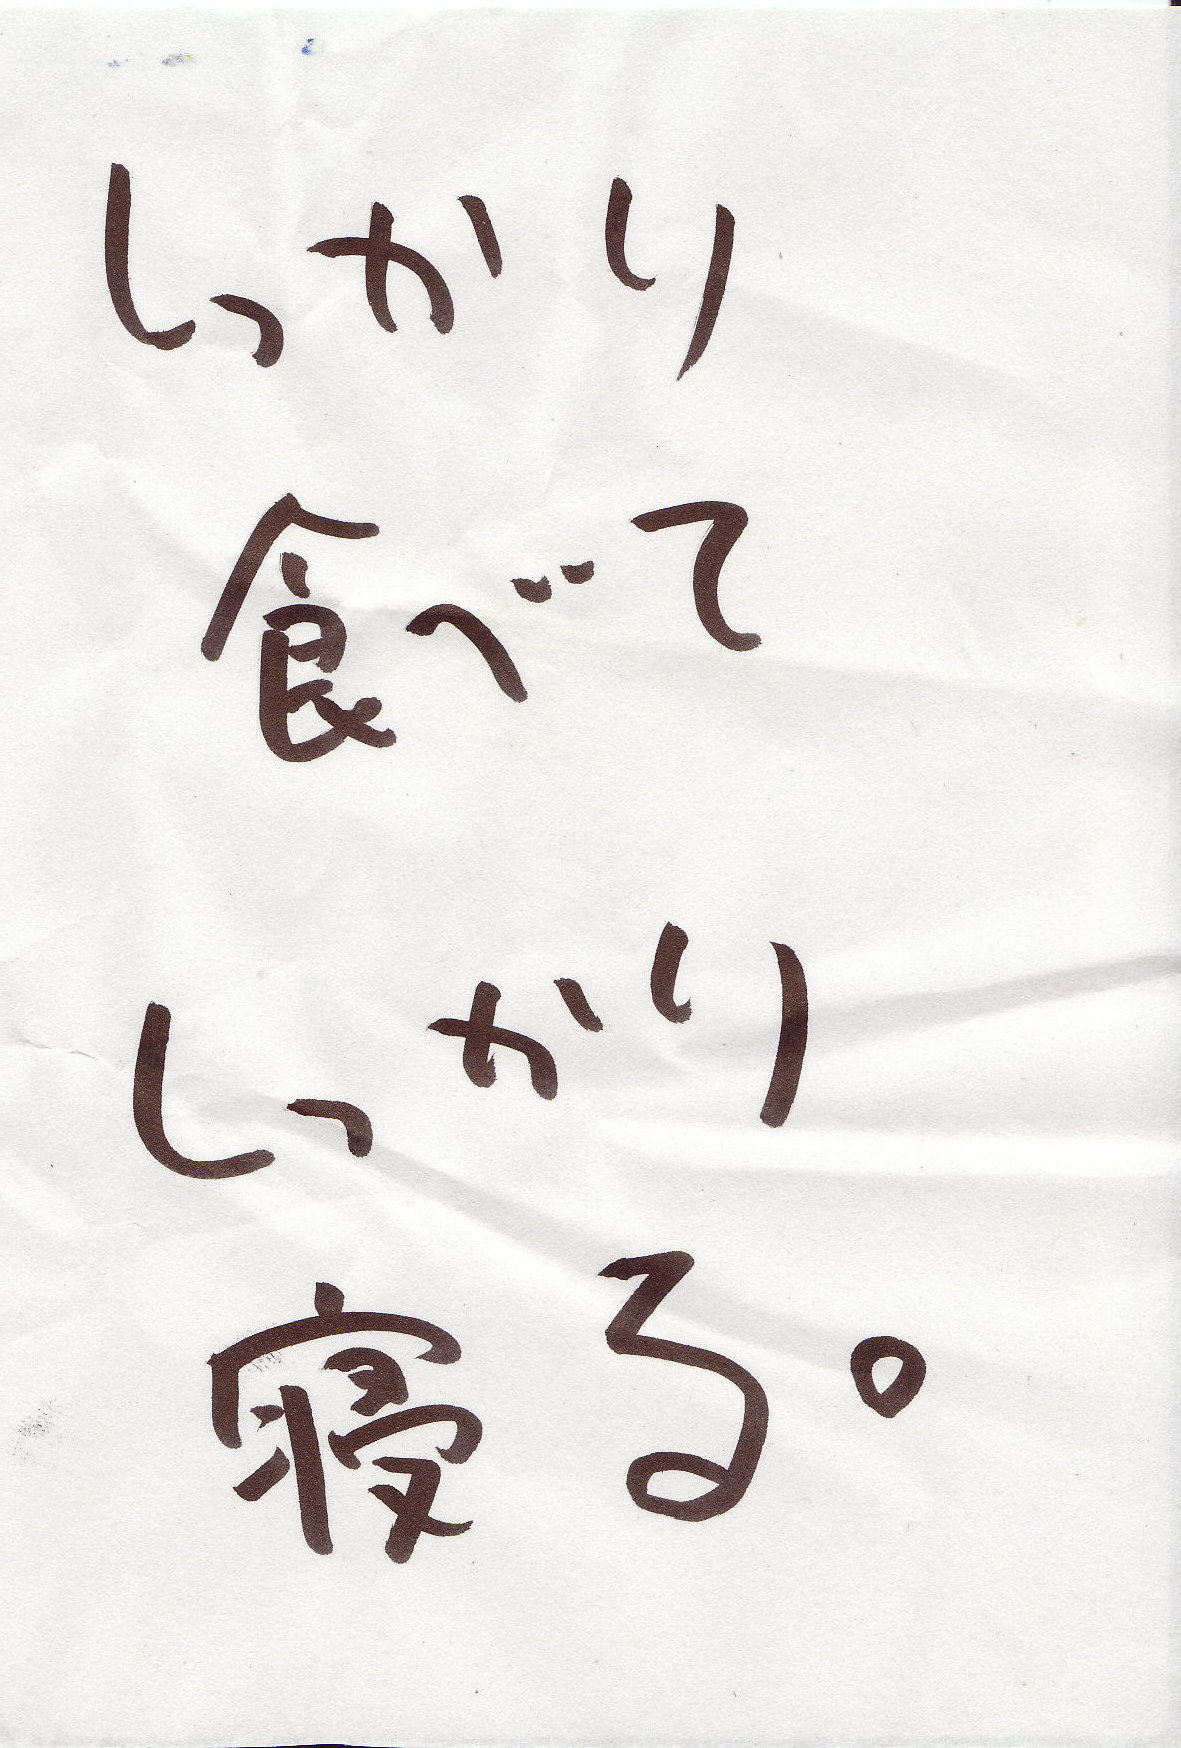 しっかり
食べて
しっかり
寝る。